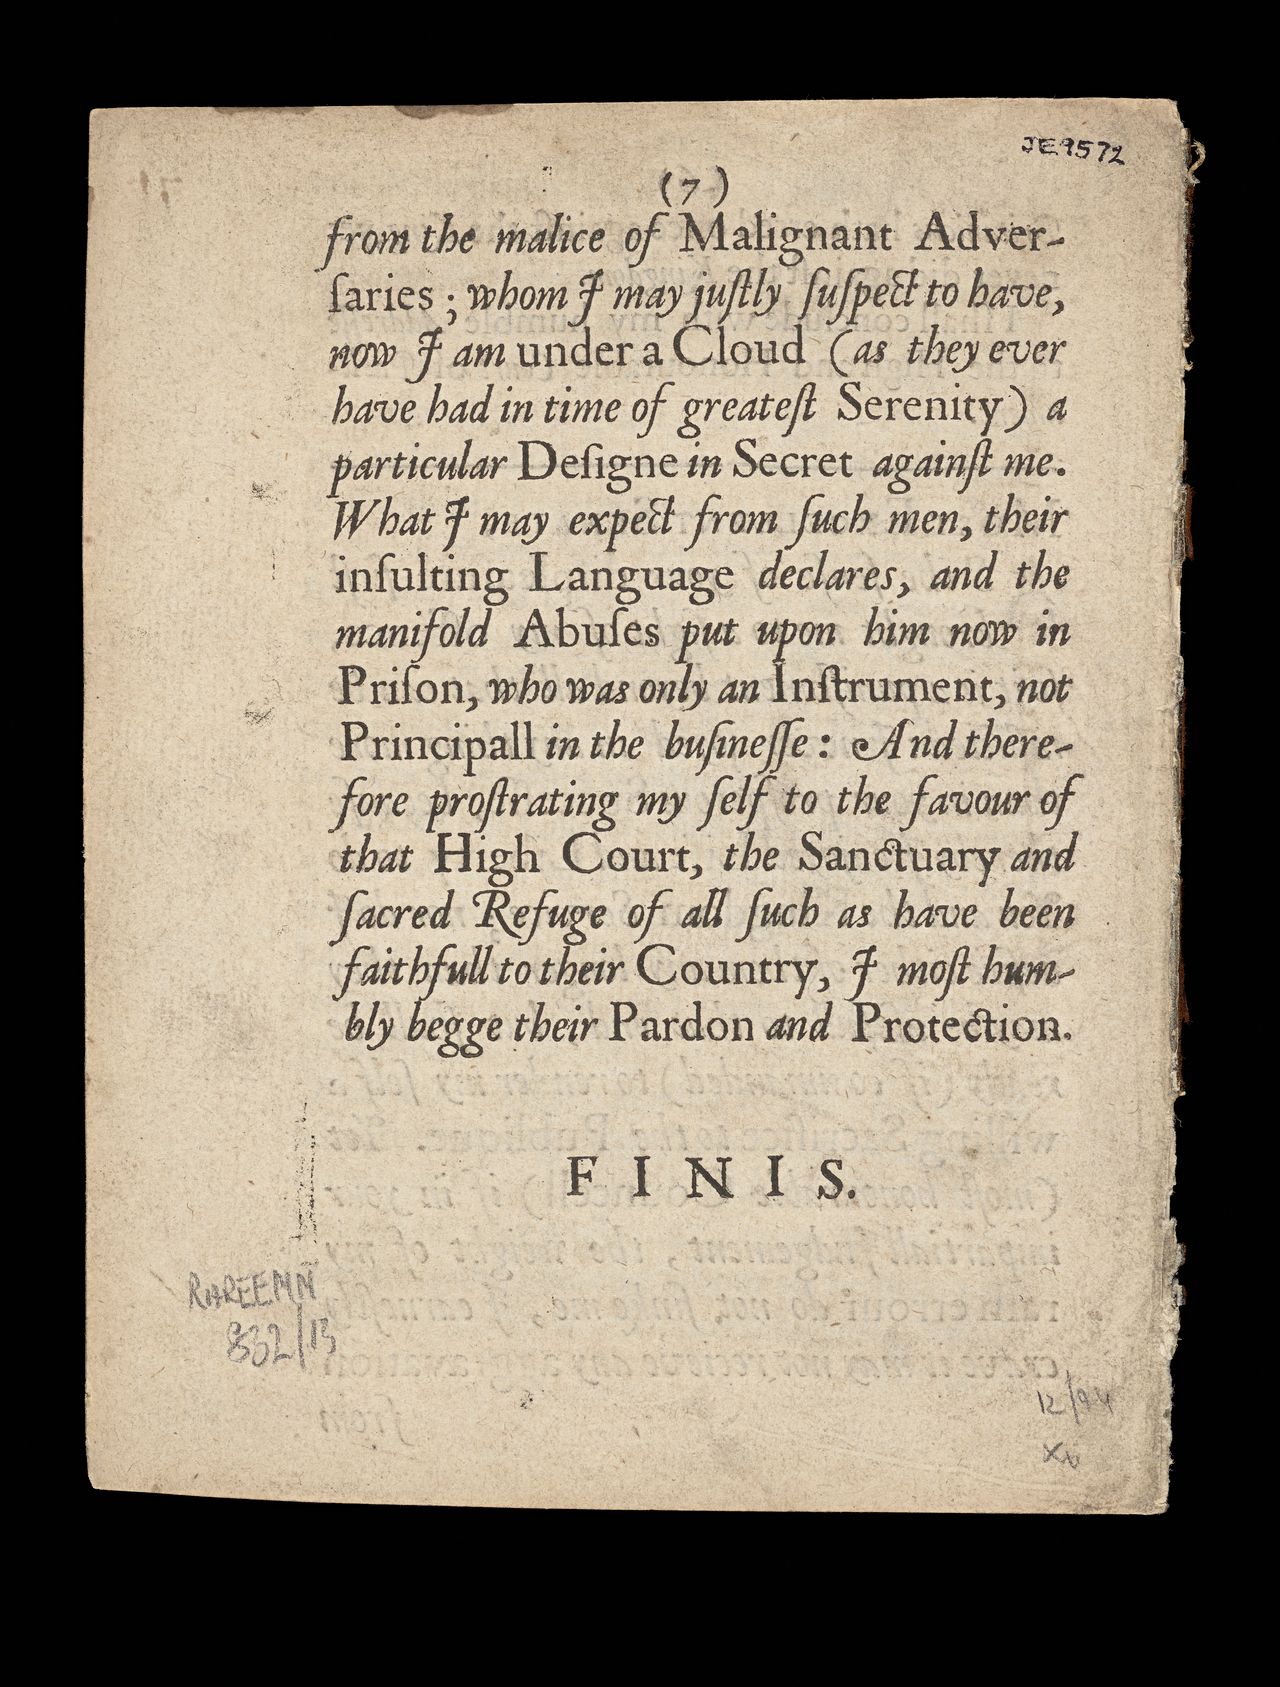 JE9572
(7)
from the malice of Malignant Adver-
ſaries ; whom I may juſtly ſuſpect to have,
now I am under a Cloud (as they ever
have had in time of greateſt Serenity) a
particular Deſigne in Secret againſt me.
What I may expect from ſuch men, their
inſulting Language declares, and the
manifold Abuſes put upon him now in
Priſon, who was only an Inſtrument, not
Principall in the buſineſſe : And there-
fore proſtrating my ſelf to the favour of
that High Court, the Sanctuary and
ſacred Refuge of all ſuch as have been
faithfull to their Country, I moſt hum-
bly begge their Pardon and Protection.
F I N I S.
832/13
12/94